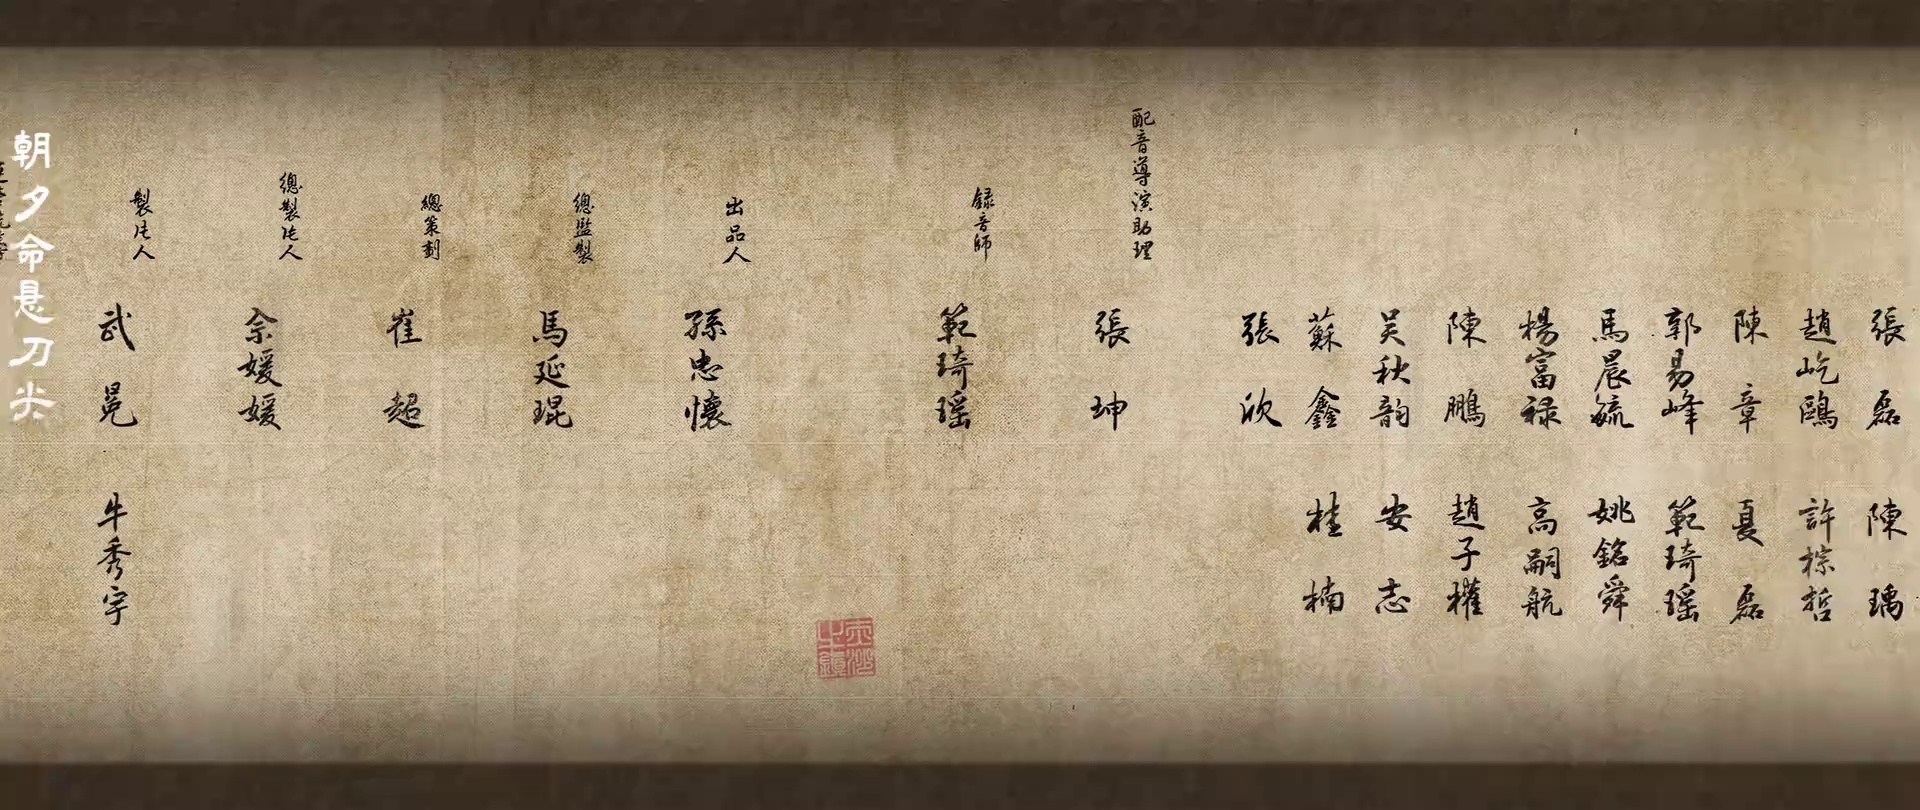 張磊
陳瑀
趙屹鷗
許棕哲
陳章
夏磊
郭易峰
範琦瑶
馬晨毓
姚銘舜
楊富禄
高嗣航
陳鵬
趙子權
吴秋韵
安志
蘇鑫
桂楠
張欣
配音導演助理
張坤
録音師
範琦瑶
出品人
孫忠懷
總監製
馬延琨
總策劃
崔超
總製片人
佘媛媛
製片人
武冕
牛秀宇
朝夕命悬刀尖